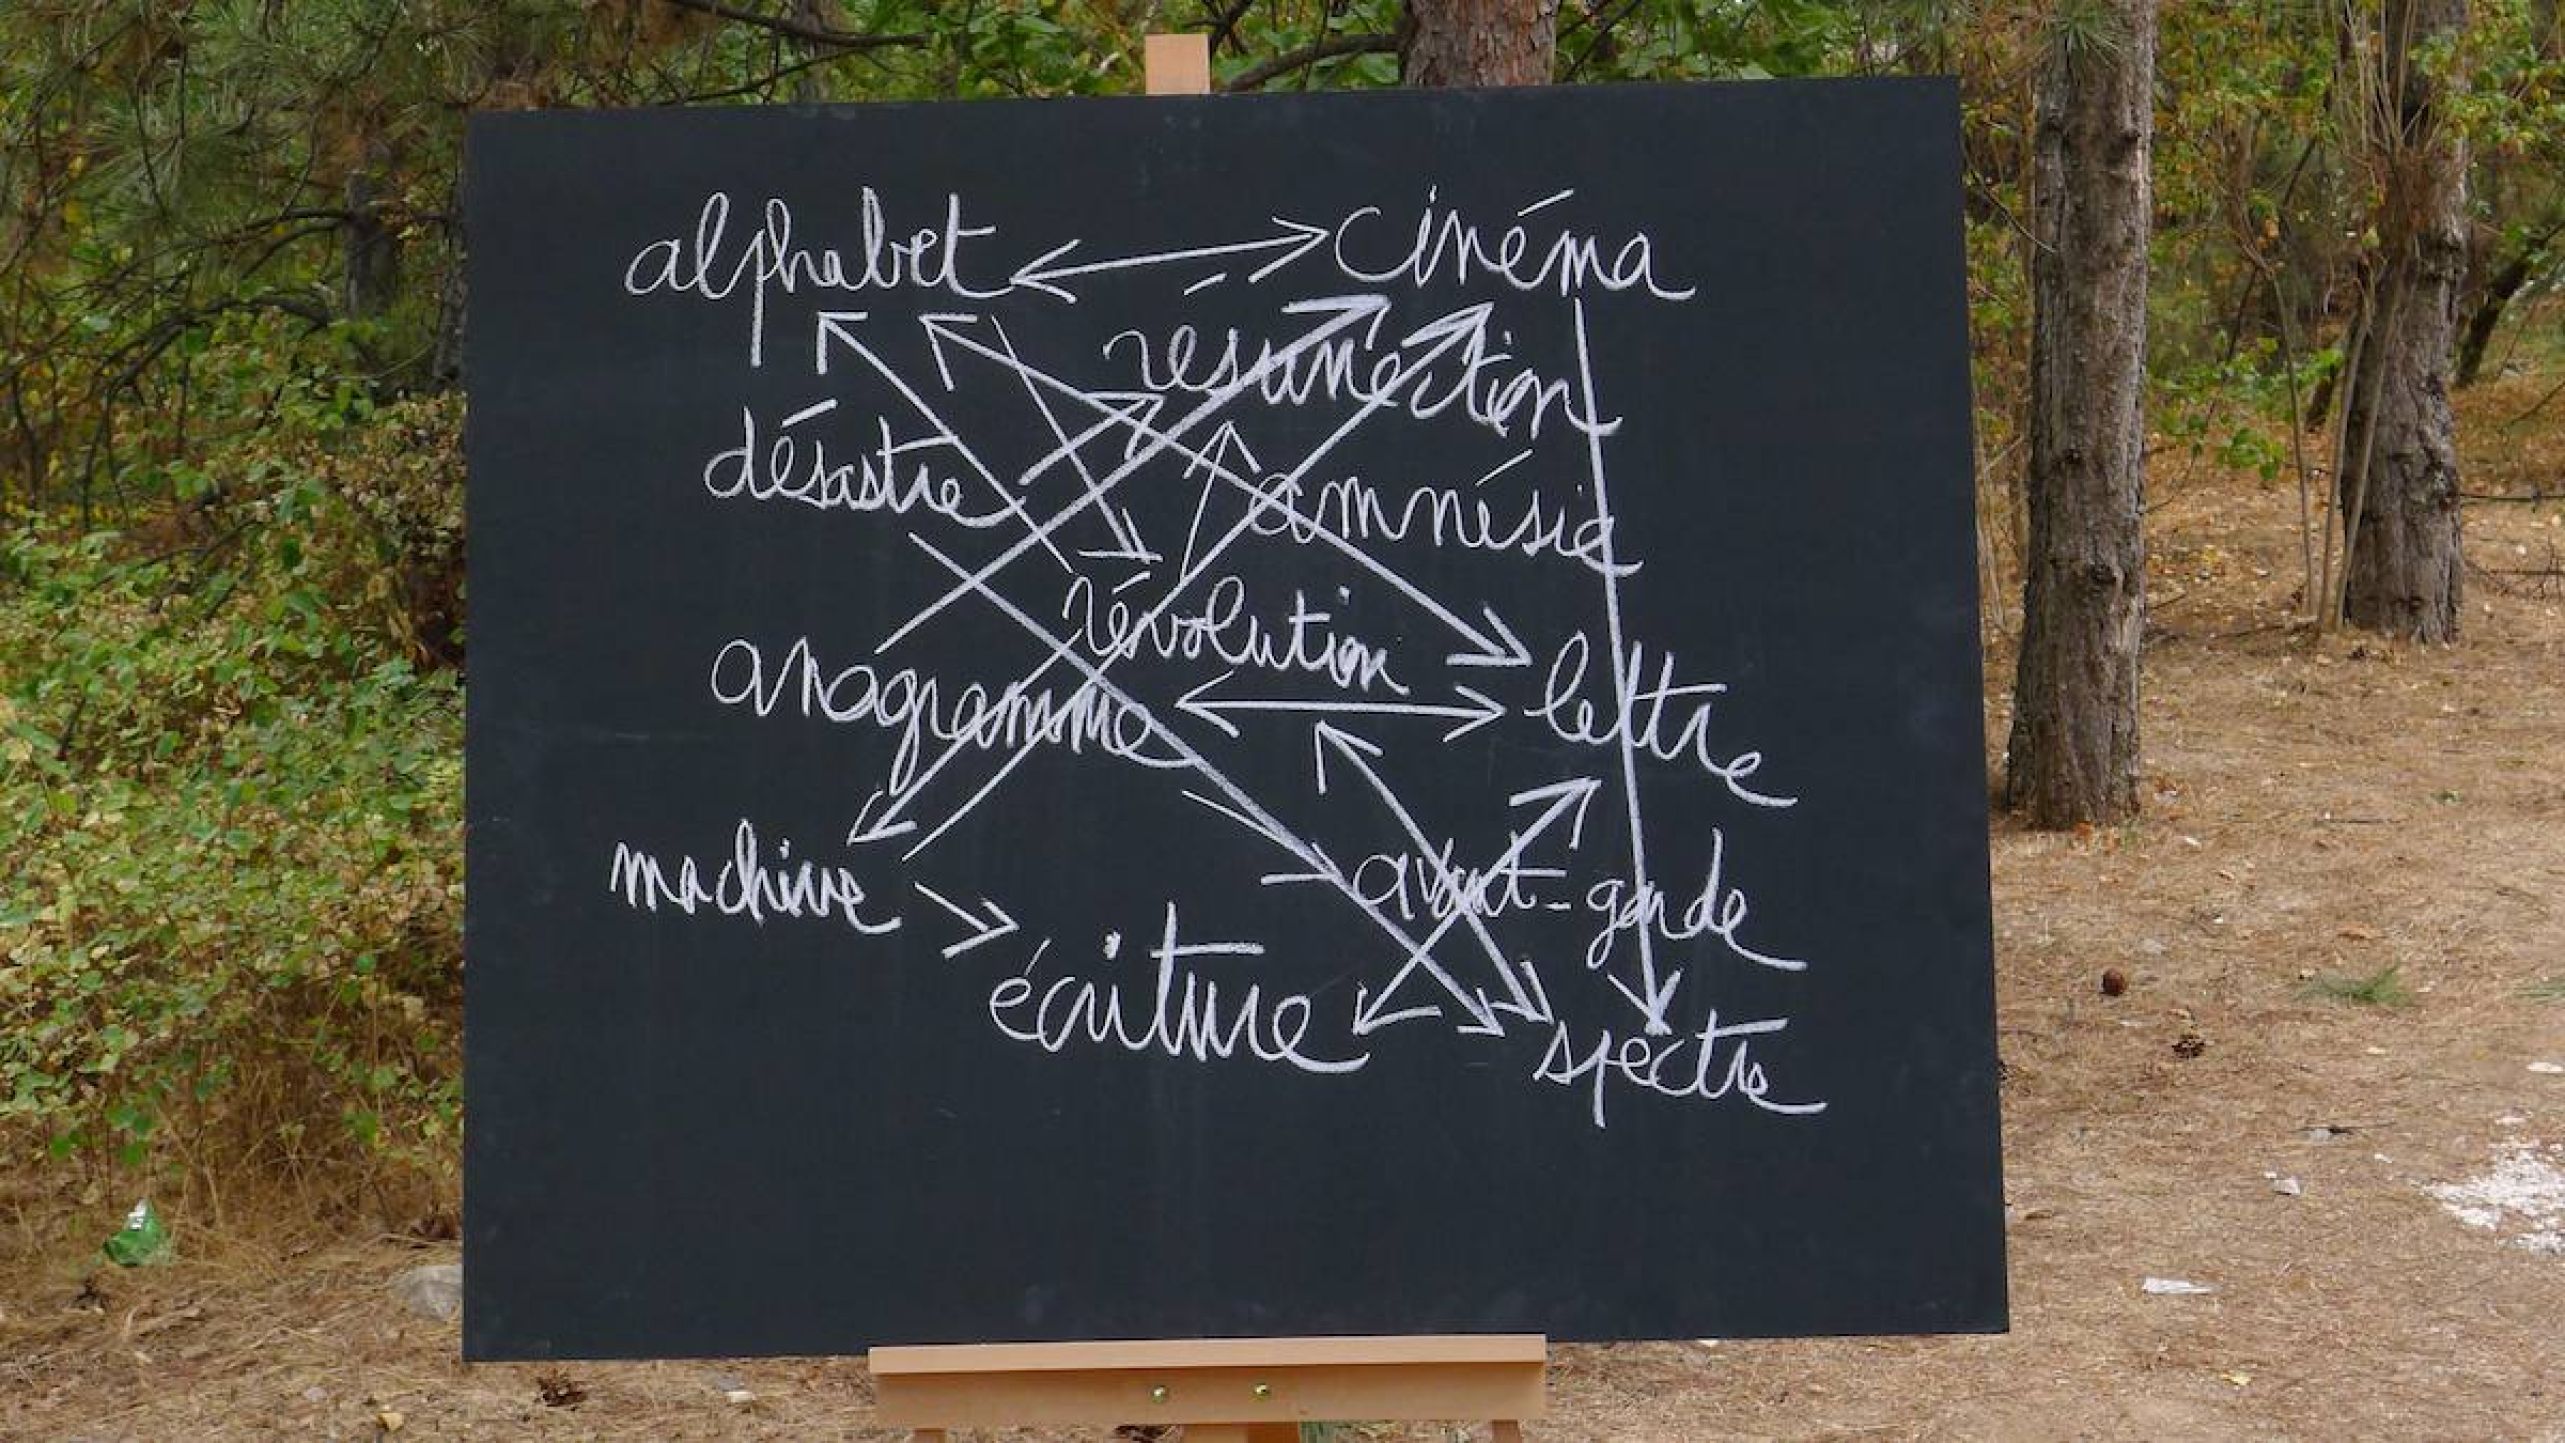 alphabet cinéma
résurrection
désastre
amnésie
révolution
anagramme lettre
machine avant-garde
écriture
spectre